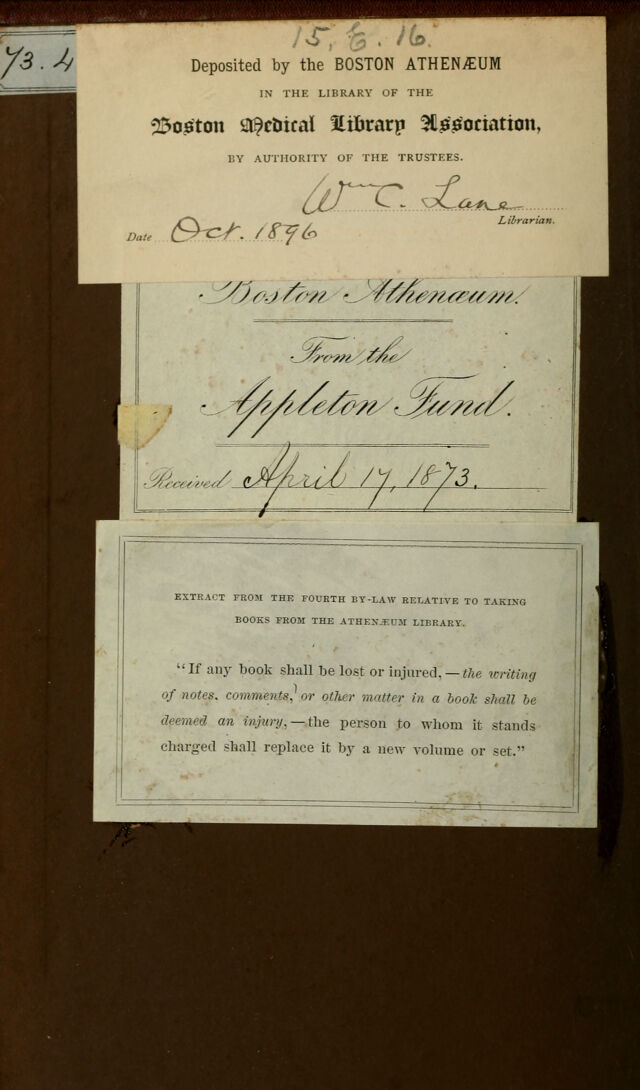 73.4
15. E. 16.
Deposited by the BOSTON ATHENÆUM
IN THE LIBRARY OF THE
Boston Medical Library Association,
BY AUTHORITY OF THE TRUSTEES.
Wm C. Lane
Librarian.
Date Oct. 1896
Boston Athenæum.
From the
Appleton Fund.
Received April 17, 1873.
EXTRACT FROM THE FOURTH BY-LAW RELATIVE TO TAKING
BOOKS FROM THE ATHENÆUM LIBRARY.
“If any book shall be lost or injured, — the writing
of notes, comments, or other matter in a book shall be
deemed an injury, — the person to whom it stands
charged shall replace it by a new volume or set.”